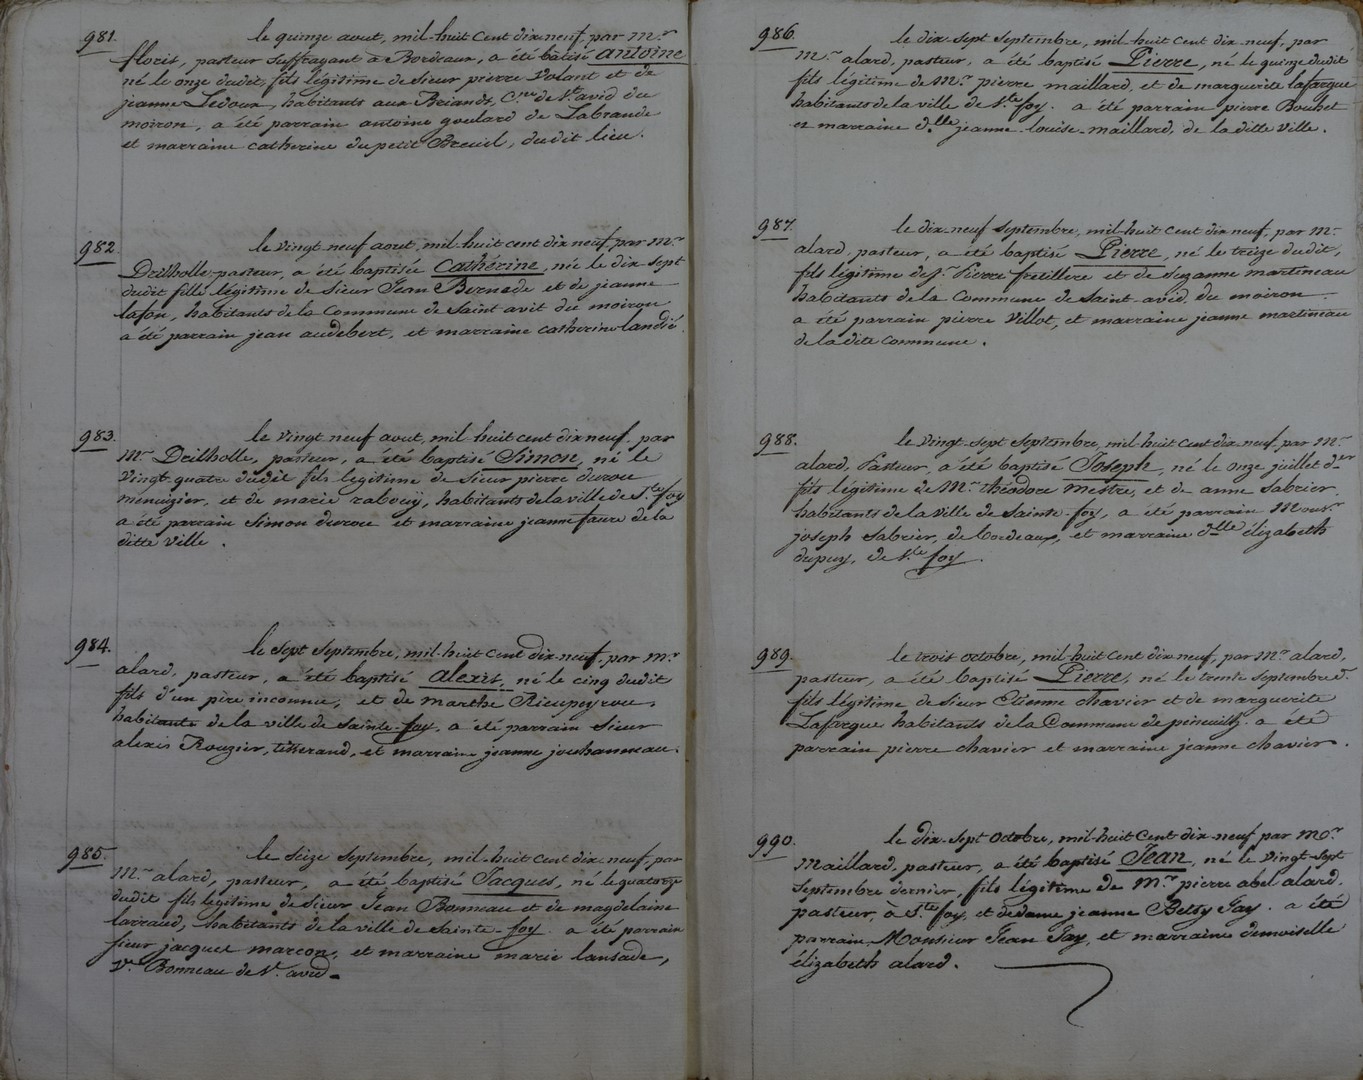 981. le quinze aout, mil-huit cent dix neuf, par mr
floris, pasteur suffragant à Bordeaux, a été batisé antoine
né le onze dudit, fils légitime de sieur pierre Volant et de
jeanne Ledoux, habitants aux Briands, Cne de St avid du
moiron, a été parrain antoine goulard de Labrande
et marraine catherine du petit Breuil, dudit lieu.
982. le vingt neuf aout, mil-huit cent dix neuf, par mr
Drilholle pasteur, a été baptisée Cathérine, née le dix sept
dudit fille légitime de Sieur Jean Bernade et de jeanne
lafon, habitants de la Commune de Saint avit du moiron
a été parrain jean audebert, et marraine catherine landié
983. le vingt neuf aout, mil-huit cent dix neuf. par
Mr Drilholle, pasteur, a été baptisé Simon, né le
vingt quatre dudit fils légitime de Sieur pierre duvou
menuizier, et de marie rabouy, habitants de la ville de Ste foy
a été parrain Simon duvou et marraine jeanne faure de la
ditte ville.
984. le Sept Septembre, mil-huit Cent Dix-neuf, par mr
alard, pasteur, a été baptisé alexis, né le cinq dudit
fils d'un père inconnu, et de marthe Rieupeyrou,
habitante de la ville de Sainte-foy. a été parrain Sieur
alexis Rouzier, tisserand, et marraine jeanne jouhanneau.
985. le Seize Septembre, mil-huit Cent dix neuf, par
Mr alard, pasteur, a été baptisé Jacques, né le quatorze
dudit fils légitime de Sieur Jean Bonneau et de magdelaine
larraud, habitants de la ville de Sainte-foy. a été parrain
sieur jacques marcon, et marraine marie lansade,
ve Bonneau de St avid.
986. le dix-sept Septembre, mil-huit cent dix-neuf, par
Mr alard, pasteur, a été baptisé Pierre, né le quinze dudit
fils légitime de Mr pierre maillard, et de marguerite lafargue
habitants de la ville de Ste foy. a été parrain pierre Bouhet
et marraine dlle jeanne-louise-maillard, de la ditte Ville.
987. le dix-neuf Septembre, mil-huit cent dix neuf. par mr
alard, pasteur, a été baptisé Pierre, né le treize dudit,
fils légitime de sr Pierre fretillere et de suzanne martineau
habitants de la Commune de Saint-avid. du moiron
a été parrain pierre Villot, et marraine jeanne martineau
de la dite commune.
988. le vingt-sept Septembre, mil-huit Cent dix-neuf, par Mr
alard, Pasteur, a été baptisé Joseph, né le onze juillet der
fils légitime de Mr théodore mestre, et de anne Sabrier,
habitants de la ville de Sainte-foy, a été parrain Monsr
joseph Sabrier, de bordeaux, et marraine dlle élizabeth
dupuy, de Ste foy.
989. le trois octobre, mil-huit Cent dix-neuf, par Mr alard,
pasteur, a été baptisé Pierre, né le trente septembre dr
fils légitime de Sieur Etienne Chavier et de marguerite
Lafargue habitants de la Commune de pineuilh. a été
parrain pierre chavier et marraine jeanne chavier.
990. le dix-Sept Octobre, mil-huit Cent dix-neuf par Mr
Maillard, pasteur, a été baptisé Jean, né le vingt-Sept
Septembre dernier, fils légitime de Mr pierre abel alard,
pasteur, à Ste foy, et de dame jeanne Betsy Jay. a été
parrain Monsieur Jean Jay, et marraine demoiselle
élizabeth alard.